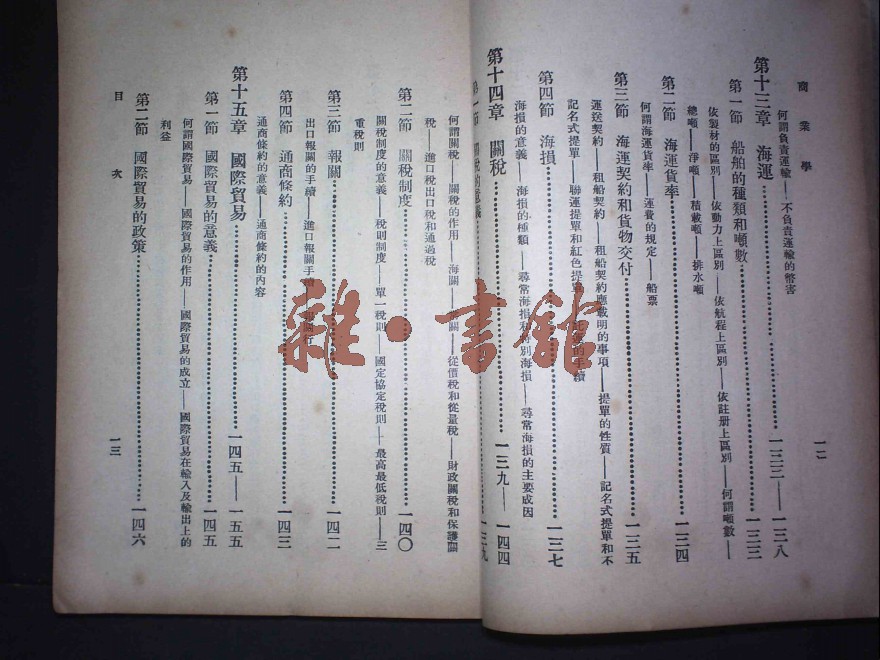 商業學
一二
何謂負責運輸——不負責運輸的幣害
第十三章　海運……一三二——一三八
第一節　船舶的種類和噸數……一三二
依製材的區別——依動力上區別——依航程上區別——依註册上區別——何謂噸數——
總噸——淨噸——積載噸——排水噸
第二節　海運貨率……一三四
何謂海運貨率——運費的規定——船票
第三節　海運契約和貨物交付……一三五
運送契約——租船契約——租船契約應載明的事項——提單的性質——記名式提單和不
記名式提單——聯運提單和紅色提單——的手續
第四節　海損……一三七
海損的意義——海損的種類——尋常海損和特別海損——尋常海損的主要成因
第十四章　關稅……一三九——一四四
第一節　關稅的意義……一三九
何謂關稅——關稅的作用——海關——關——從價稅和從量稅——財政關稅和保護關
稅——進口稅出口稅和通過稅
第二節　關稅制度……一四〇
關稅制度的意義——稅則制度——單一稅則——國定協定稅則——最高最低稅則——三
重稅則
第三節　報關……一四二
出口報關的手續——進口報關手續——報關行
第四節　通商條約……一四三
通商條約的意義——通商條約的內容
第十五章　國際貿易……一四五——一五五
第一節　國際貿易的意義……一四五
何謂國際貿易——國際貿易的作用——國際貿易的成立——國際貿易在輸入及輸出上的
利益
第二節　國際貿易的政策……一四六
目次
一三
雜·書館